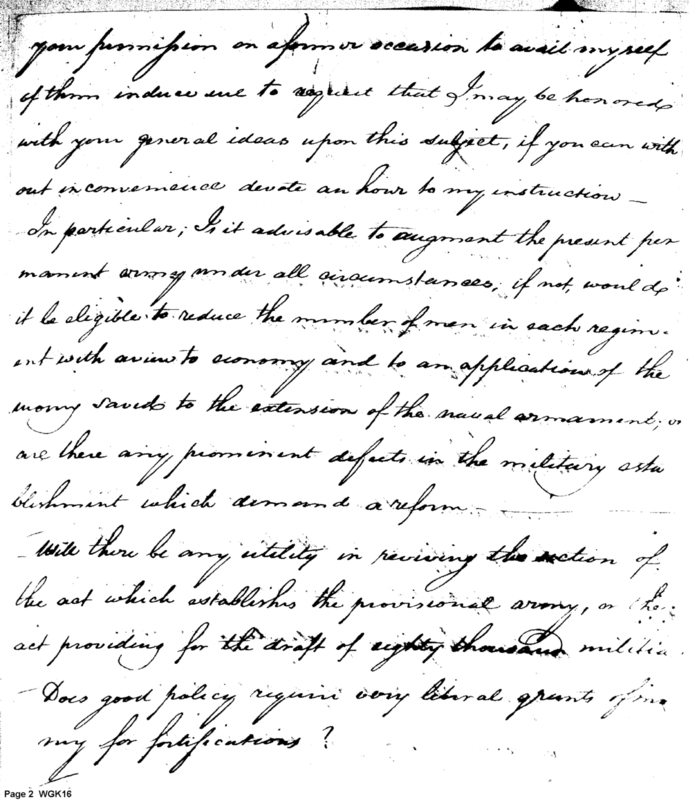 your permission on a former occasion to avail myself
of them induce me to request that I may be honored
with your general ideas upon this subject, if you can with
out inconvenience devote an hour to my instruction —
In particular; Is it advisable to augment the present per
manent army under all circumstances, if not, would
it be eligible to reduce the number of men in each regim-
ent with a view to economy and to an application of the
money saved to the extension of the naval armament; or
are there any prominent defects in the military esta
blishment which demand a reform —
— Will there be any utility in reviving the section of
the act which establishes the provisional army, or the
act providing for the draft of eighty thousand militia
— Does good policy require very liberal grants of mo
ny for fortifications?
Page 2 WGK16